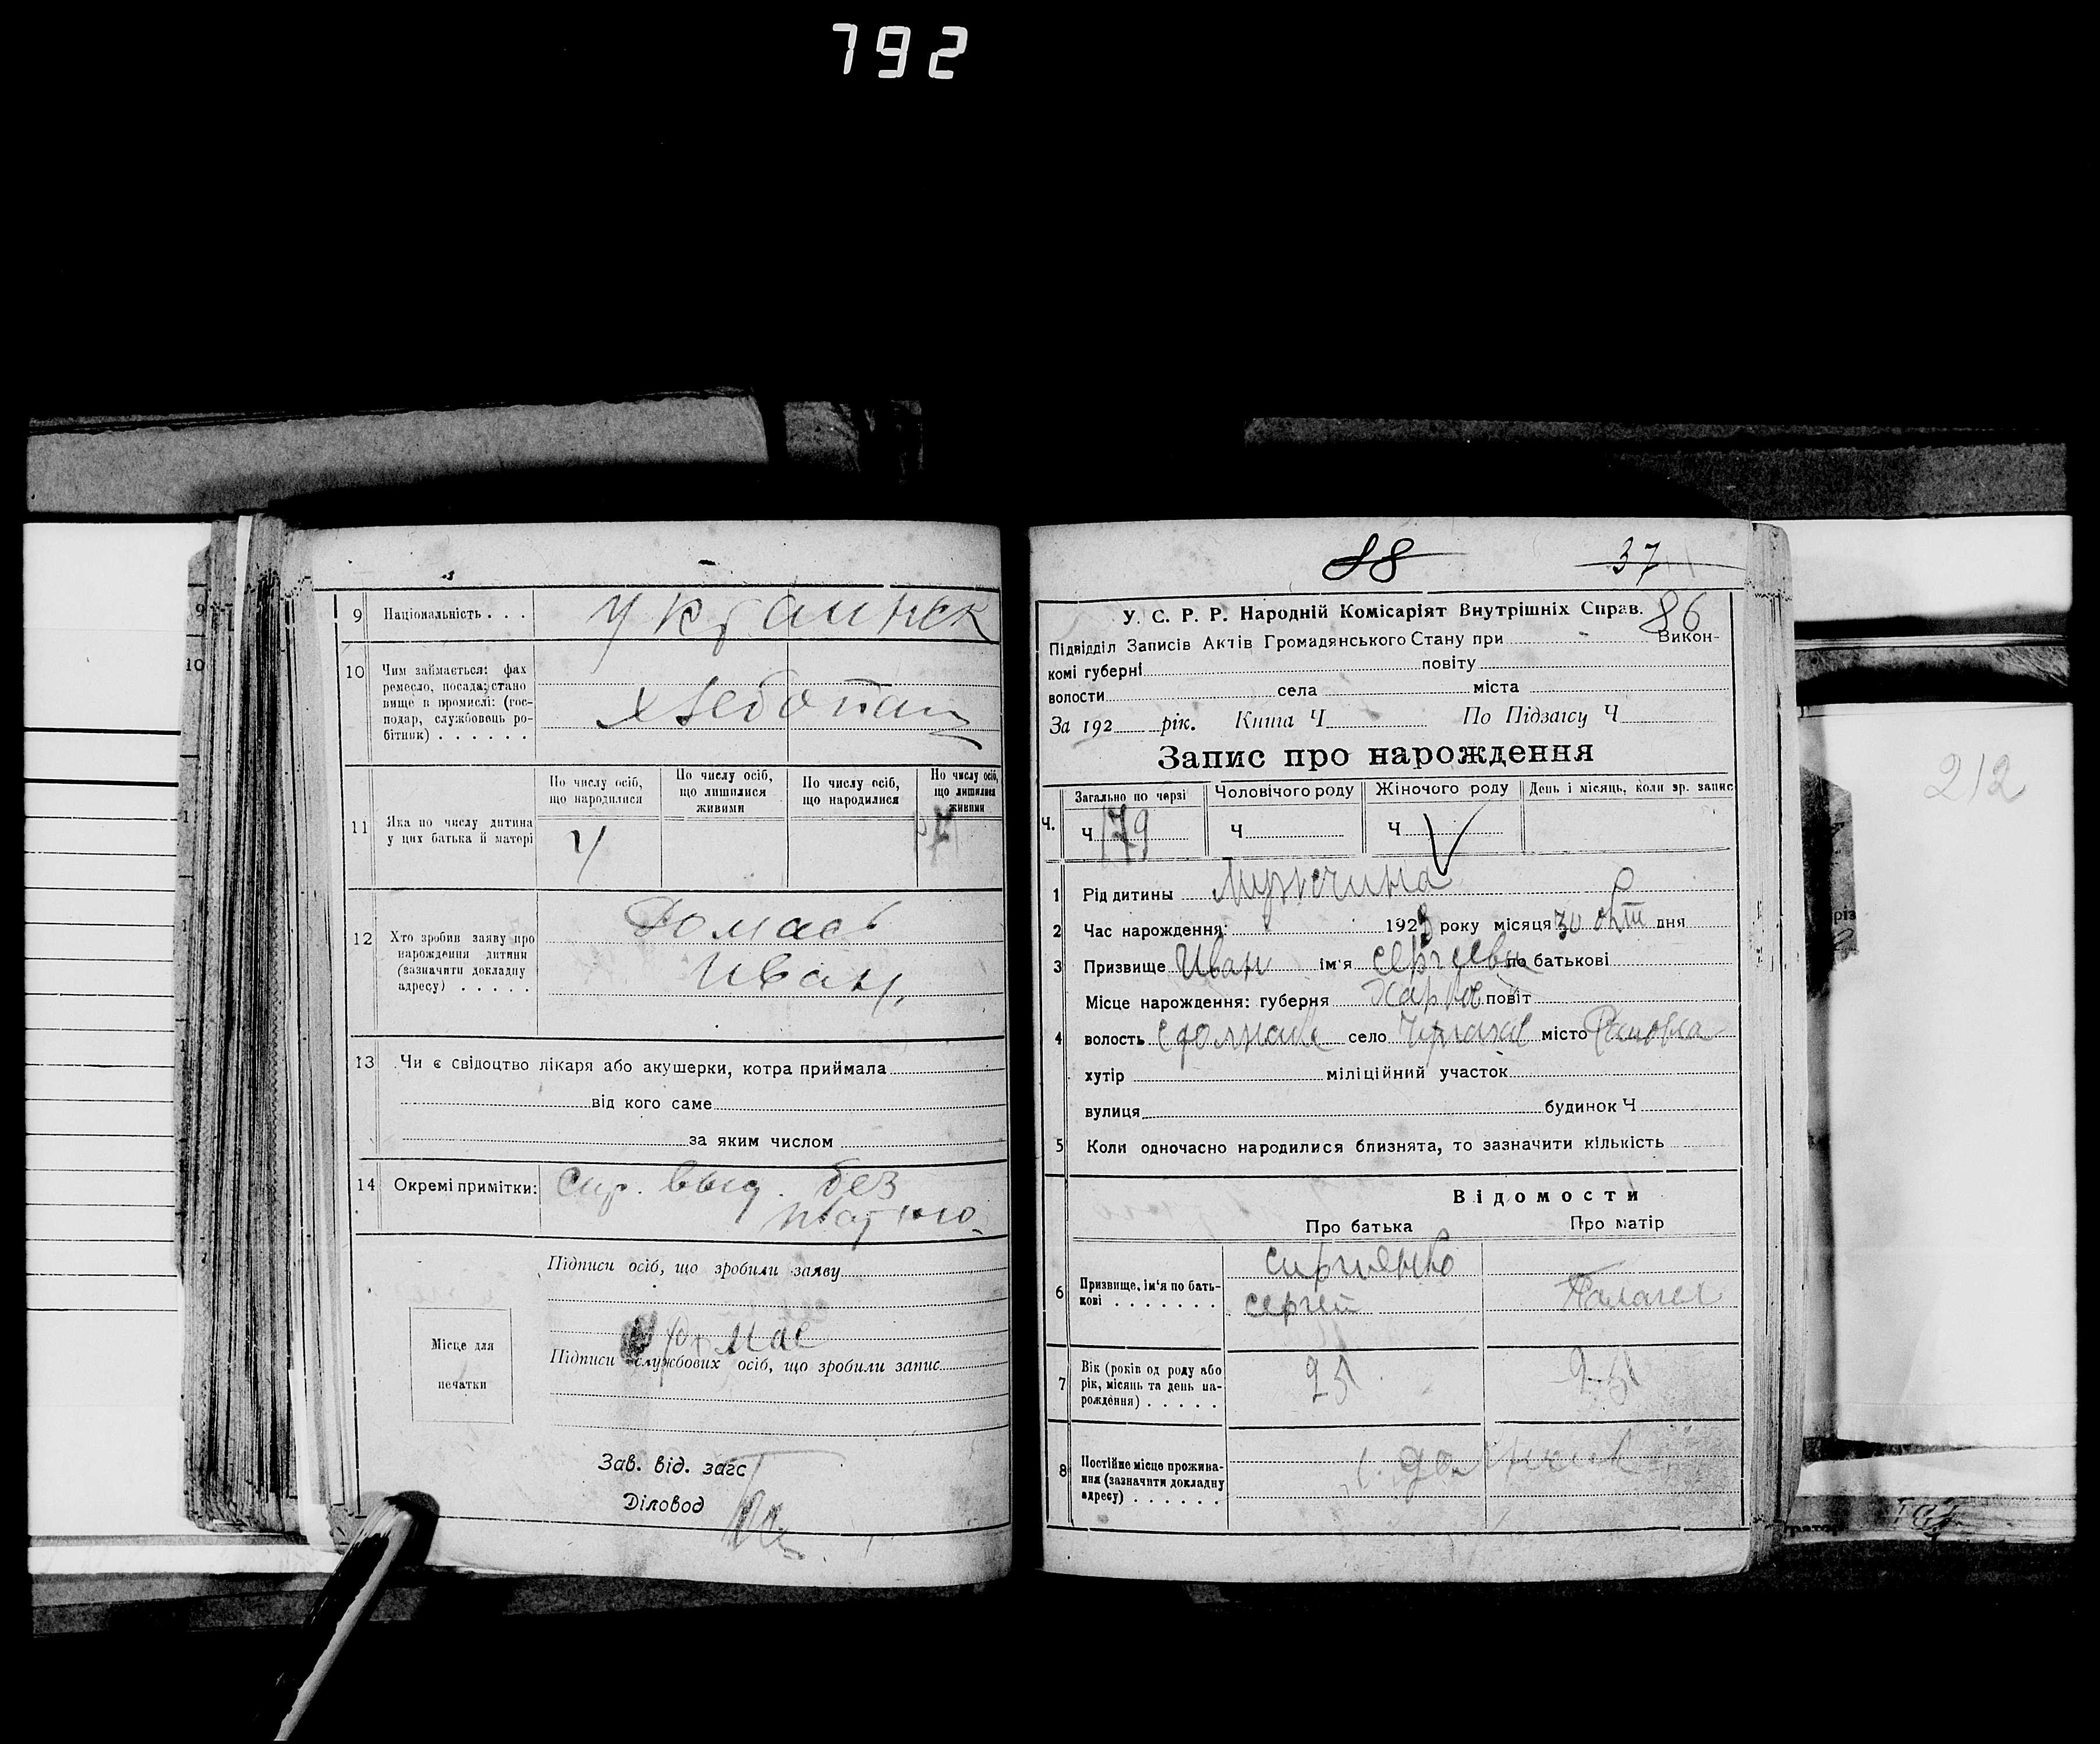 792
9 Національність . . . Украинск
10 Чим займається: фах
ремесло, посада; стано
вище в промислі: (гос-
подар, службовець ро-
бітник) . . . . . .
хлебопаш
11 Яка по числу дитина
у цих батька й матері
По числу осіб,
що народилися
По числу осіб,
що лишилися
живими
По числу осіб,
що народилися
Но числу осіб,
що лишилися
живими
4
12 Хто зробив заяву про
нарождення дитини
(зазначити докладну
адресу) . . . . .
Иван
13 Чи є свідоцтво лікаря або акушерки, котра приймала
від кого саме
за яким числом
14 Окремі примітки: спр. выд. без
Підписи осіб, що зробили заяву
Підписи службових осіб, що зробили запис
Місце для
печатки
Зав. від. загс
Діловод
88 37
86
У. С. Р. Р. Народній Комісаріят Внутрішніх Справ.
Підвідділ Записів Актів Громадянського Стану при Викон-
комі губерні повіту
волости села міста
За 192 рік. Книга Ч По Підзагсу Ч
Запис про нарождення
Ч. Загально по черзі Чоловічого роду Жіночого роду День і місяць, коли зр. запис
Ч 179 Ч Ч
1 Рід дитины Мужчина
2 Час нарождення: 1923 року місяця 30 окт дня
3 Призвище Иван ім'я сергеевич по батькові
Місце нарождення: губерня Харьк повіт
4 волость село місто
хутір міліційний участок
вулиця будинок Ч
5 Коли одночасно народилися близнята, то зазначити кількість
Відомости
Про батька Про матір
6 Призвище, ім'я по бать-
кові . . . . . . .
сергиенко
сергей
Палагея
7 Вік (років од роду або
рік, місяць та день на-
рождення) . . . . .
25 25
8 Постійне місце прожива-
ння (зазначити докладну
адресу) . . . . . .
212